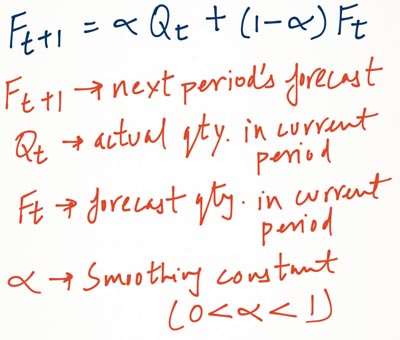 F_{t+1} = α Q_t + (1-α) F_t
F_{t+1} → next period's forecast
Q_t → actual qty. in current
period
F_t → forecast qty. in current
period
α → Smoothing constant
(0<α<1)